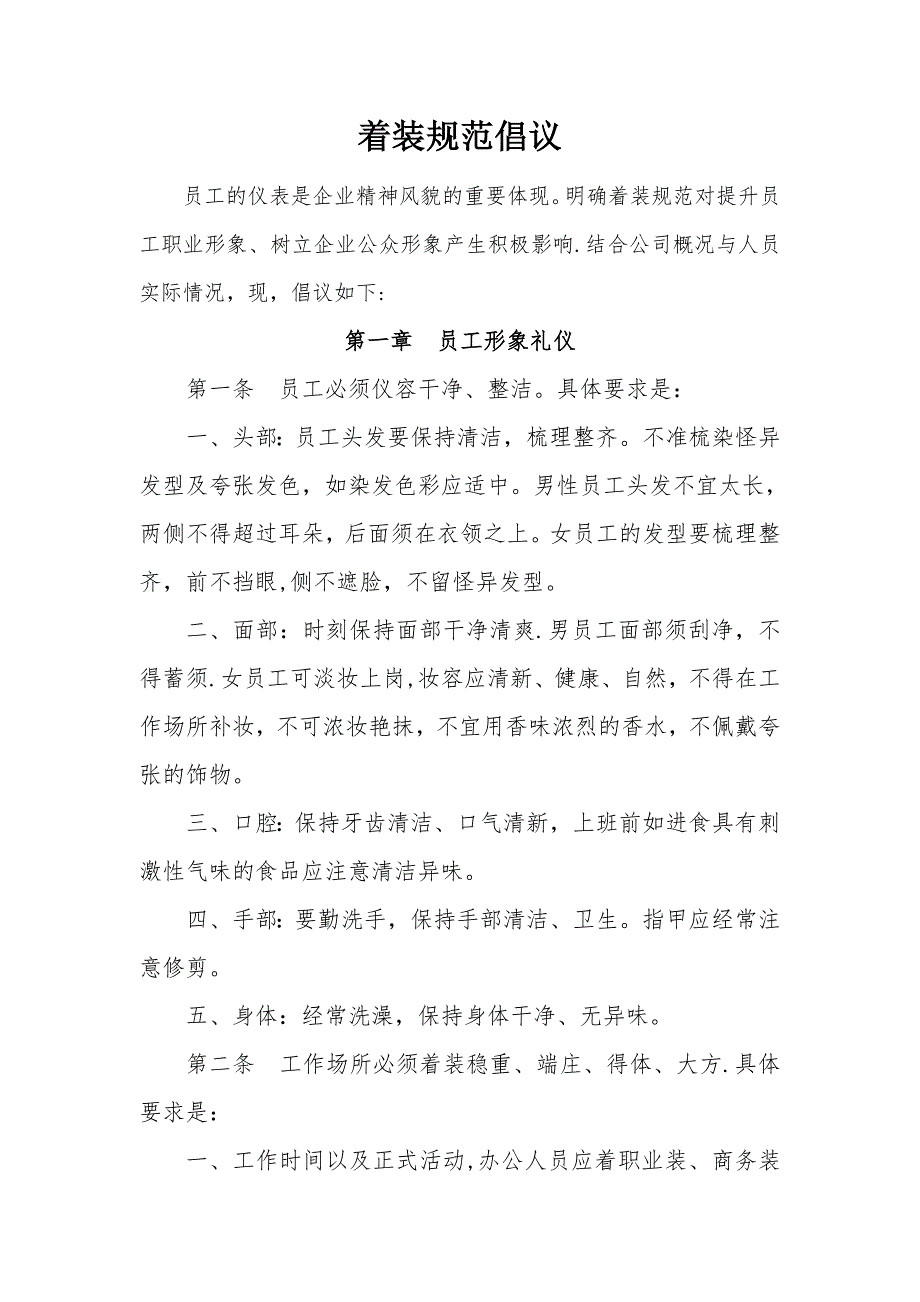 着装规范倡议
员工的仪表是企业精神风貌的重要体现。明确着装规范对提升员
工职业形象、树立企业公众形象产生积极影响.结合公司概况与人员
实际情况，现，倡议如下:
第一章　员工形象礼仪
第一条　员工必须仪容干净、整洁。具体要求是：
一、头部：员工头发要保持清洁，梳理整齐。不准梳染怪异
发型及夸张发色，如染发色彩应适中。男性员工头发不宜太长，
两侧不得超过耳朵，后面须在衣领之上。女员工的发型要梳理整
齐，前不挡眼,侧不遮脸，不留怪异发型。
二、面部：时刻保持面部干净清爽.男员工面部须刮净，不
得蓄须.女员工可淡妆上岗,妆容应清新、健康、自然，不得在工
作场所补妆，不可浓妆艳抹，不宜用香味浓烈的香水，不佩戴夸
张的饰物。
三、口腔：保持牙齿清洁、口气清新，上班前如进食具有刺
激性气味的食品应注意清洁异味。
四、手部：要勤洗手，保持手部清洁、卫生。指甲应经常注
意修剪。
五、身体：经常洗澡，保持身体干净、无异味。
第二条　工作场所必须着装稳重、端庄、得体、大方.具体
要求是：
一、工作时间以及正式活动,办公人员应着职业装、商务装